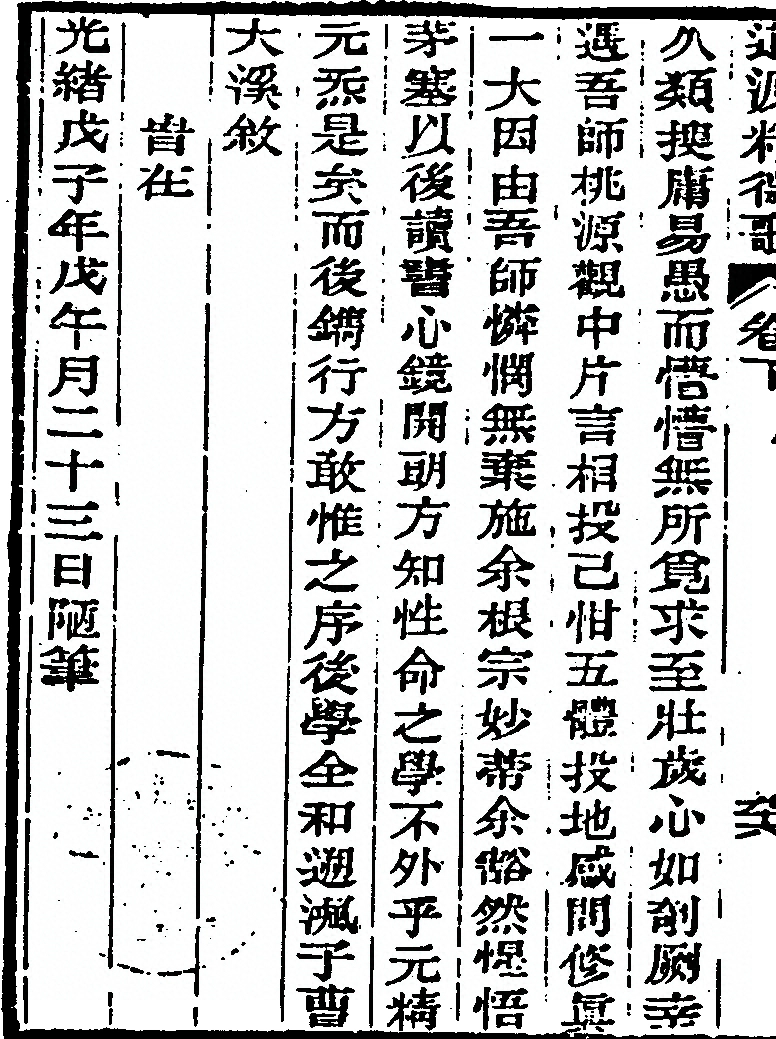 道源精微歌 卷下
久類換庸易愚而惛懵無所覓求至壯歲心如剖厥幸
遇吾師桃源觀中片言相投己怈五體投地感問修眞
一大因由吾師憐憫無棄施余根宗妙蒂余豁然惺悟
茅塞以後讀書心鏡開朗方知性命之學不外乎元精
元炁是矣而後鐫行方敢惟之序後學全和遡渢子曹
大溪敘
旹在
光緒戊子年戊午月二十三日陋筆